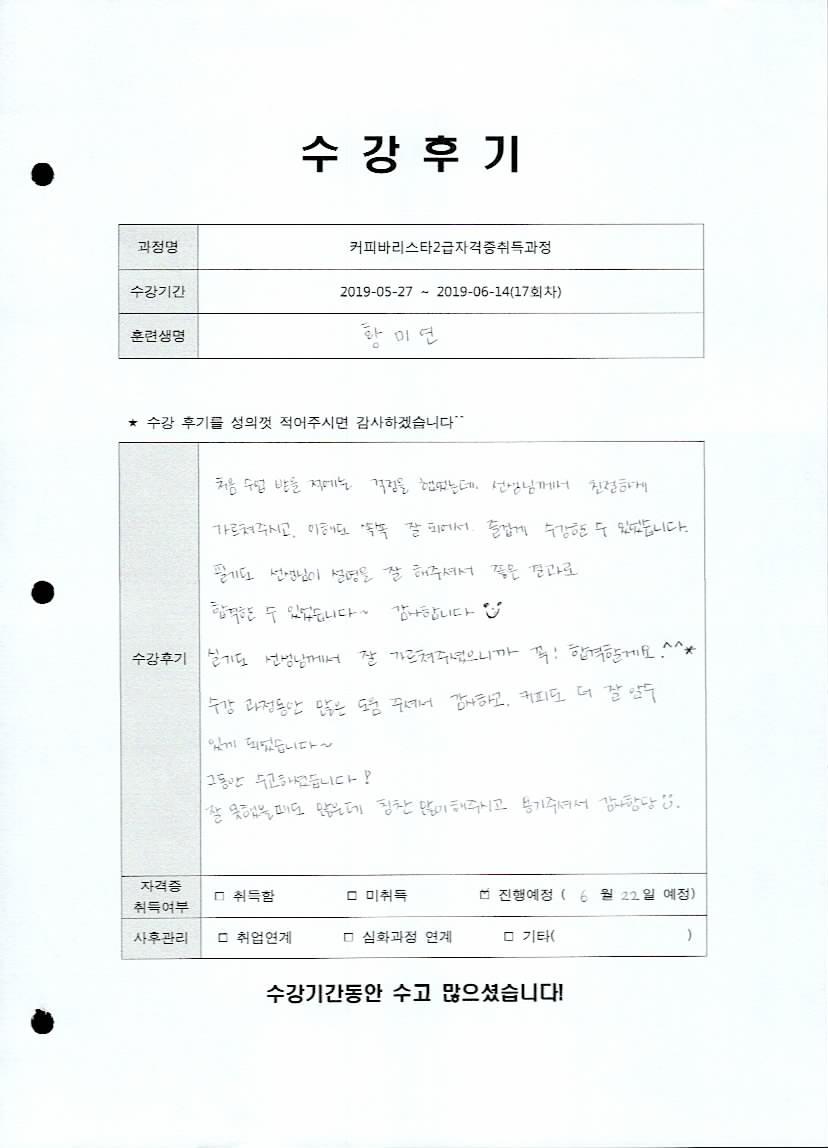 수 강 후 기
과정명 커피바리스타2급자격증취득과정
수강기간 2019-05-27 ~ 2019-06-14(17회차)
훈련생명 황 미 연
★ 수강 후기를 성의껏 적어주시면 감사하겠습니다^^
수강후기
처음 수업 받을 적에는 걱정을 했었는데, 선생님께서 친절하게
가르쳐주시고, 이해도 쏙쏙 잘 되어서 즐겁게 수강할 수 있었습니다.
필기도 선생님이 설명을 잘 해주셔서 좋은 결과로
합격할 수 있었습니다~ 감사합니다
실기도 선생님께서 잘 가르쳐주셨으니까 꼭! 합격할게요.^^*
수강 과정동안 많은 도움 주셔서 감사하고, 커피도 더 잘 알수
있게 되었습니다~
그동안 수고하셨습니다!
잘 못했을때도 많은데 칭찬 많이해주시고 용기주셔서 감사함당
자격증 취득여부 □ 취득함 □ 미취득 ☑ 진행예정 ( 6 월 22일 예정)
사후관리 □ 취업연계 □ 심화과정 연계 □ 기타( )
수강기간동안 수고 많으셨습니다!